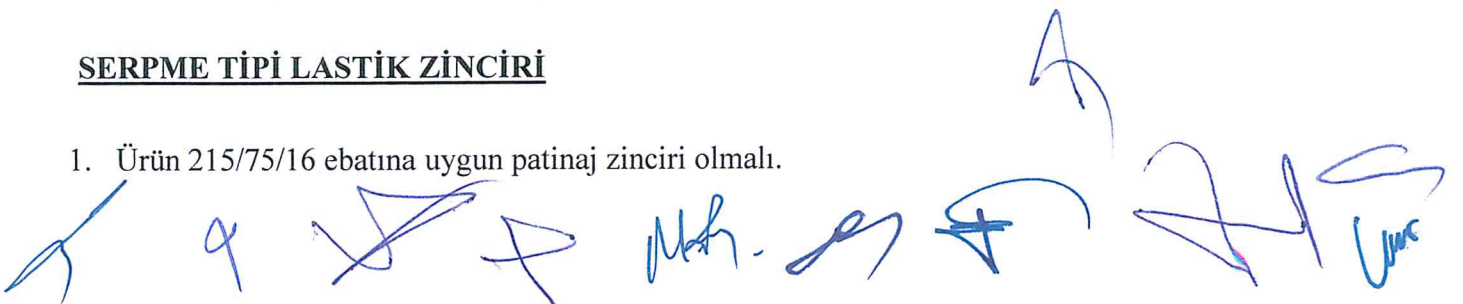 SERPME TİPİ LASTİK ZİNCİRİ
1. Ürün 215/75/16 ebatına uygun patinaj zinciri olmalı.